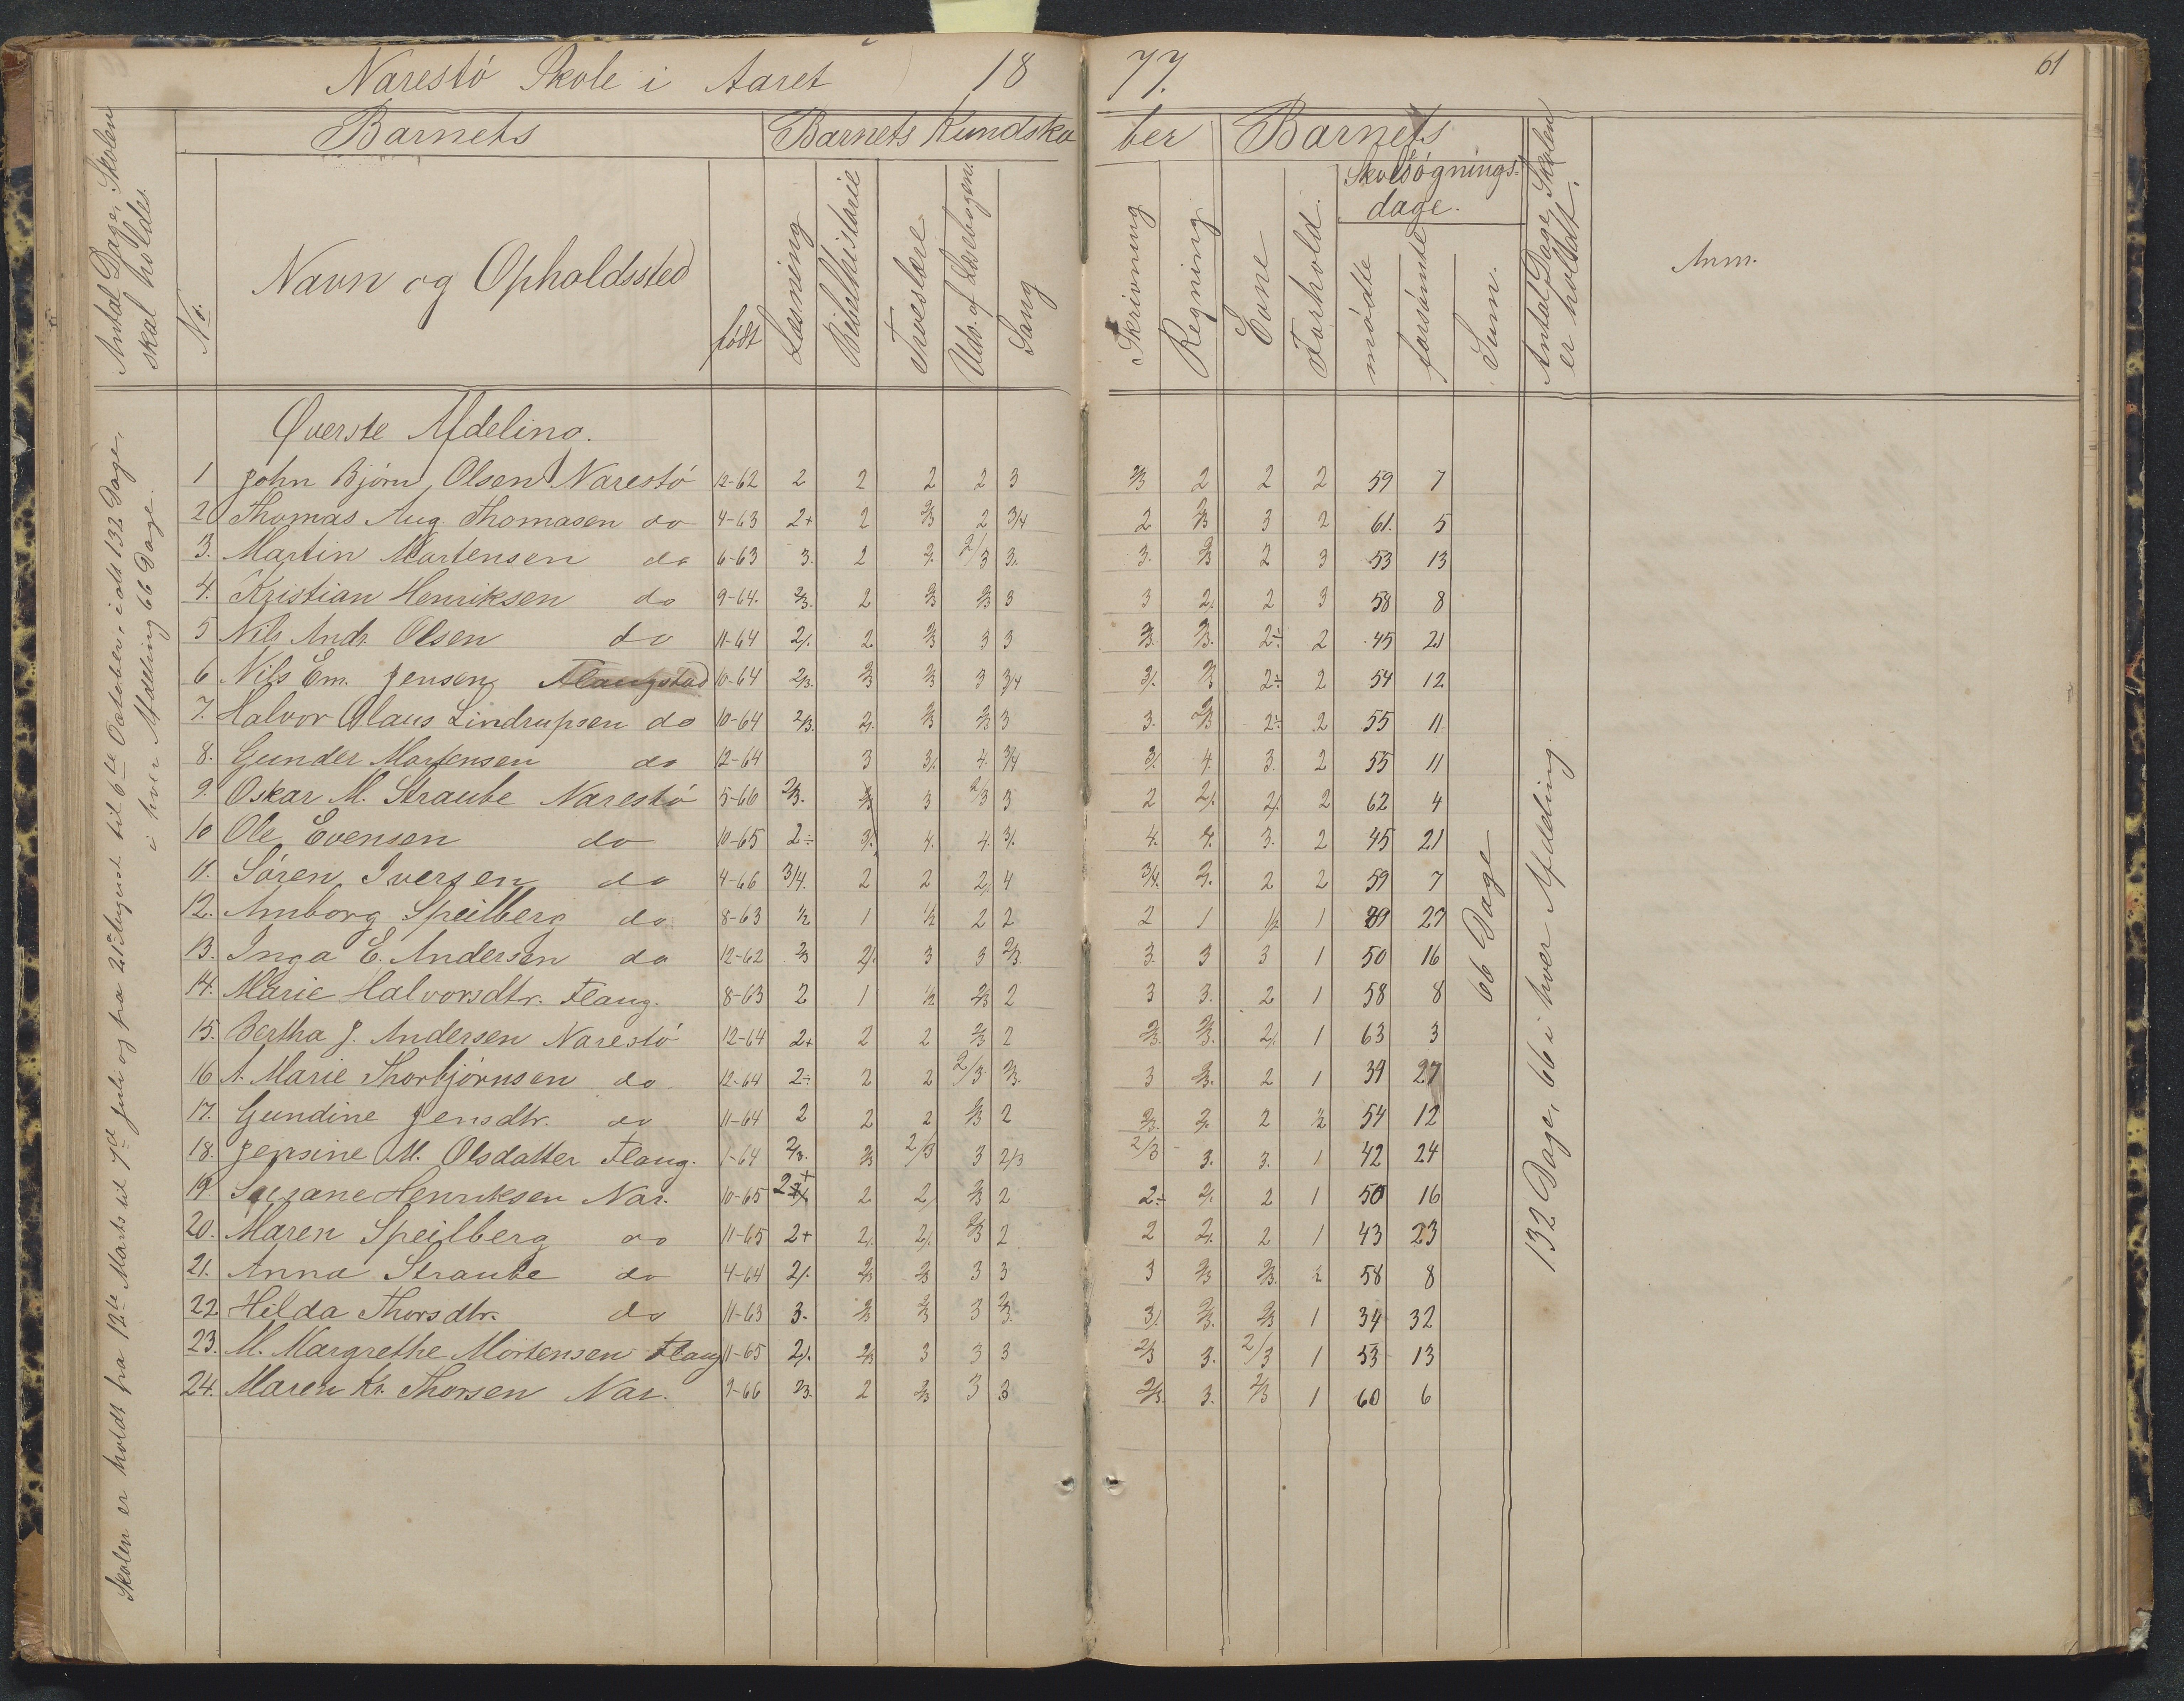 Narestö Skole i Aaret 18 77.
61
Antal Dage, Skolen skal holdes.
Barnets
Barnets Kundskaber
Barnets
Skolesøgningsdage.
Antal Dage Skolen er holdt.
Anm.
No.
Navn og Opholdssted
født
Læsning
Bibelhistorie
Troeslære
Udv. af Læsebogen.
Sang
Skrivning
Regning
Evne
Forhold.
mødte
forsømte
Sum.
Øverste Afdeling.
1 John Bjørn Olsen Narestö 12-62 2 2 2 2 3 2/3 2 2 2 59 7
2 Thomas Aug. Thomasen do 4-63 2+ 2 2/3 2 3/4 2 2/3 3 2 61. 5
3. Martin Martensen do 6-63 3. 2 2. 2/3 3. 3. 2/3 2 3 53 13
4. Kristian Henriksen do 9-64. 2/3. 2 2/3 2/3 3 3 2. 2 3 58 8
5 Nils Andr. Olsen do 11-64 2. 2 2/3 3 3 2/3. 2/3. 2÷ 2 45 21
6 Nils Em. Jensen Flangstad 10-64 2/3. 2/3 2/3 3 3/4 3. 2/3 2÷ 2 54 12
7. Halvor Olaus Lindrupsen do 10-64 2/3. 2. 2/3 2/3 3 3. 2/3 2÷ 2 55 11
8. Gunder Mortensen do 12-64 3 3. 4. 3/4 3. 4. 3. 2 55 11
9. Oskar M. Straube Narestö 5-66 2/3. 2/3 3 2/3 3 2 2. 2. 2 62 4
10 Ole Evensen do 10-65 2÷ 3. 4. 4. 3. 4. 4. 3. 2 45 21
11. Søren Iversen do 4-66 3/4. 2 2 2. 4 3/4. 3. 2 2 59 7
12. Amborg Speilberg do 8-63 1/2 1 1/2 2 2 2 1 1/2 1 39 27
13. Inga E. Andersen do 12-62 2/3 2. 3 3 2/3. 3. 3 3 1 50 16
14. Marie Halvorsdtr. Flang. 8-63 2 1 1/2 2/3 2 3 3. 2 1 58 8
15. Bertha J. Andersen Narestö 12-64 2+ 2 2 2/3 2 2/3. 2/3. 2. 1 63 3
16 A. Marie Thorbjørnsen do 12-64 2÷ 2 2 2/3 2/3. 3 2/3. 2 1 39 27
17. Gundine Jensdtr. do 11-64 2 2 2 2/3 2 2/3. 2. 2 1/2 54 12
18. Jensine M. Olsdatter Flang. 1-64 2/3. 2/3 2/3 3 2/3 2/3 3. 3. 1 42 24
19 Susane Henriksen Nar. 10-65 2+ 2 2. 2/3 2 2÷ 2. 2 1 50 16
20. Maren Speilberg do 11-65 2+ 2. 2. 2/3 2 2 2. 2 1 43 23
21. Anna Straube do 4-64 2. 2/3 2/3 3 3 3 2/3 2/3. 1/2 58 8
22 Hilda Thorsdtr. do 11-63 3. 2/3 2/3 3 2/3. 3. 2/3. 2/3 1 34 32
23. M. Margrethe Mortensen Flang 11-65 2. 2/3 3 3 3 2/3 3. 2/3 1 53 13
24. Maren Kr. Thorsen Nar. 9-66 2/3. 2 2/3 3 3 2/3. 3. 2/3 1 60 6
66 Dage
132 Dage, 66 i hver Afdeling
Skolen er holdt fra 12te Marts til 7de Juli og fra 21de August til 6te October, i alt 132 Dage,
i hver Afdeling 66 Dage.